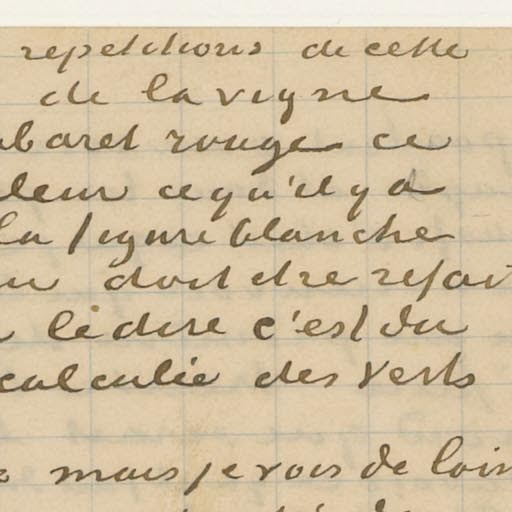 repetitions de cette
de la vigne
abaret rouge ce
leur ce qu'il y a
la figure blanche
doit etre refait
lédire c'est du
calculée des verts
mais je vois de loin